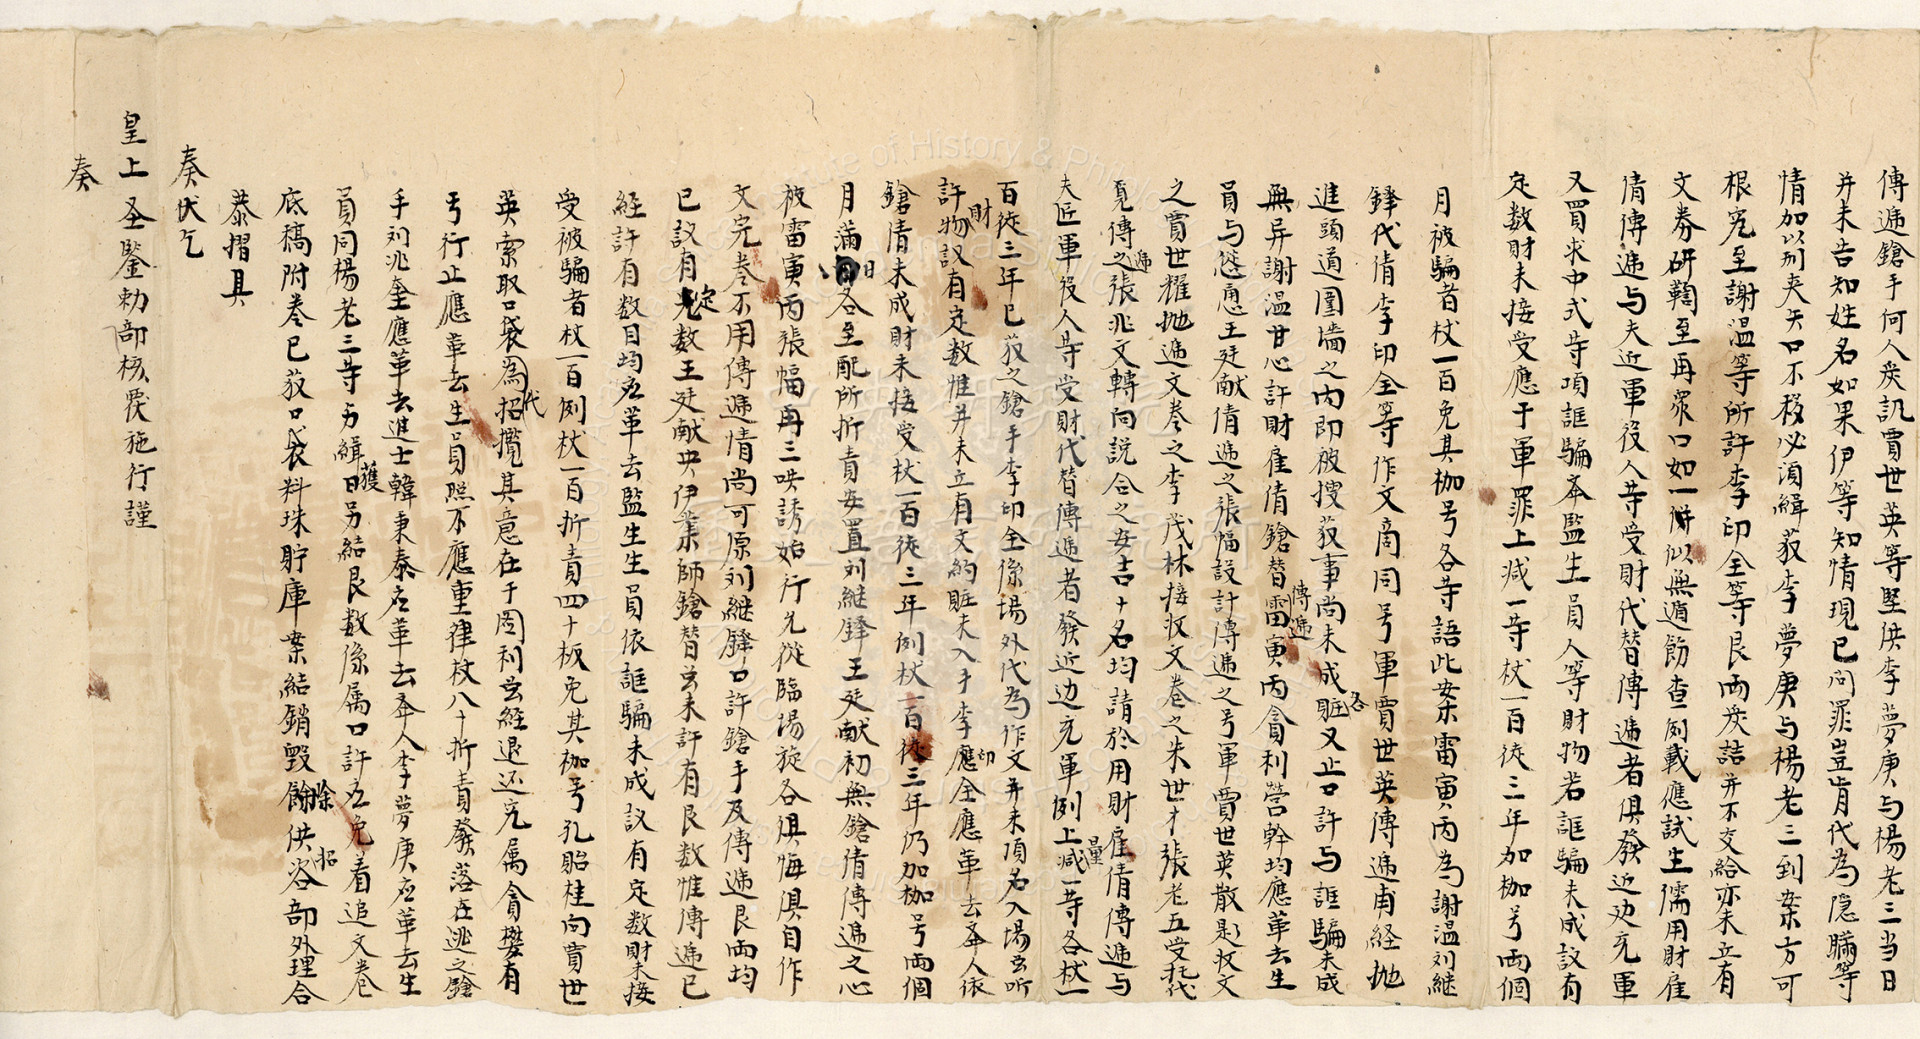 傳遞鎗手何人矣訊賈世英等堅供李夢庚与楊老三当日
并未告知姓名如果伊等知情現已问罪豈肯代為隐瞞等
情加以刑夹矢口不移必須緝获李夢庚与楊老三到案方可
根究至謝溫等所許李印全等艮両矣詰并不交給亦未立有
文券研鞫至再衆口如一似無遁飭查例載應試生儒用財雇
倩傳遞与夫近軍役人等受財代替傳遞者俱發近边充軍
又買求中式等項誆騙举監生員人等財物若誆騙未成议有
定数財未接受應于軍罪上减一等杖一百徒三年加枷号両個
月被騙者杖一百免其枷号各等語此案雷寅丙為謝溫刘継
鋒代倩李印全等作文商同号軍賈世英傳遞甫経拋
進頭道圍墻之内即被搜获事尚未成赃各又止口許与誆騙未成
無异謝溫甘心許財雇倩鎗替傳遞雷寅丙貪利营幹均應革去生
員与慫恿王廷献倩遞之張幅設計傳遞之号軍賈世英散是收文
之賈世耀拋遞文卷之李茂林接收文卷之朱世才張老五受托代
覓傳遞之張兆文轉向説合之安吉十名均請於用財雇倩傳遞与
夫匠軍役人等受財代替傳遞者發近边充軍例上量减一等各杖一
百徒三年已获之鎗手李印全係場外代為作文并未頂名入場苖所
許財物议有定数惟并未立有文約赃未入手李印全應革去举人依
鎗倩未成財未接受杖一百徒三年例杖一百徒三年仍加枷号両個
月滿日各至配所折責安置刘継鋒王廷献初無鎗倩傳遞之心
被雷寅丙張幅再三哄誘始行允從臨場旋各俱悔俱自作
文完卷不用傳遞情尚可原刘継鋒口許鎗手及傳遞艮両均
已议有定数王廷献央伊業師鎗替苖未許有艮数惟傳遞已
経許有数目均应革去監生生員依誆騙未成议有定数財未接
受被騙者杖一百例杖一百折責四十板免其枷号孔貽桂向賈世
英索取口袋代為招攬其意在于图利苖経退还究属貪樊有
亏行止應革去生員照不應重律杖八十折責發落在逃之鎗
手刘兆奎應革去進士韓秉泰应革去举人李夢庚应革去生
員同楊老三等另緝獲日另結艮数係属口許应免着追文卷
底稿附卷已获口袋料珠貯庫案結銷毀除供招咨部外理合
恭摺具
奏伏乞
皇上圣鑒勅部核覆施行謹
奏